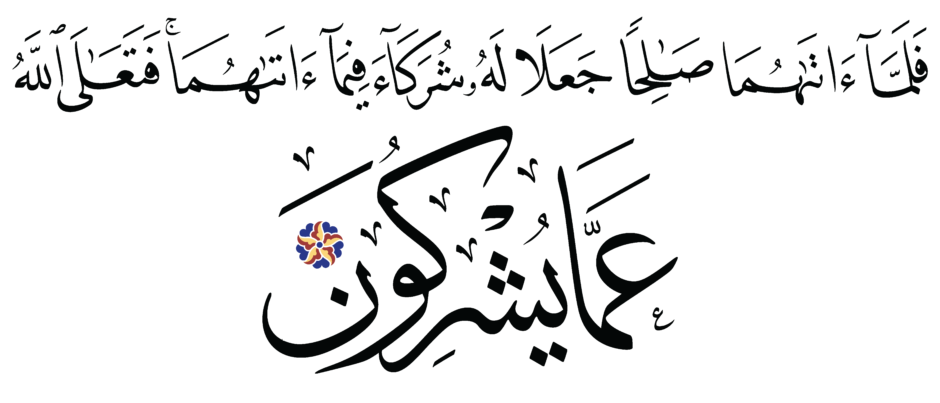 فَلَمَّآ ءَاتَىٰهُمَا صَـٰلِحًا جَعَلَا لَهُۥ شُرَكَآءَ فِيمَآ ءَاتَىٰهُمَا ۚ فَتَعَـٰلَى ٱللَّهُ
عَمَّا يُشْرِكُونَ